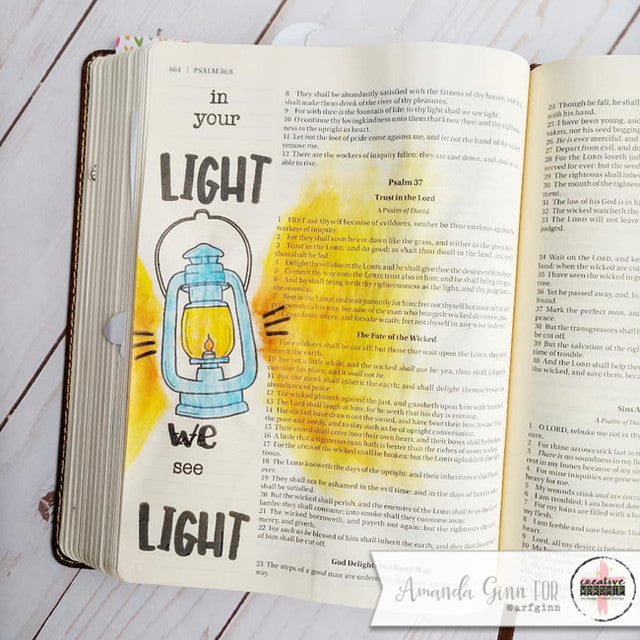 664 | PSALM 36:8
in
your
LIGHT
we
see
LIGHT
8 They shall be abundantly satisfied with the fatness of thy house, and thou
shalt make them drink of the river of thy pleasures.
9 For with thee is the fountain of life: in thy light shall we see light.
10 O continue thy lovingkindness unto them that know thee; and thy righteous-
ness to the upright in heart.
11 Let not the foot of pride come against me, and let not the hand of the wicked
remove me.
12 There are the workers of iniquity fallen: they are cast down, and shall not be
able to rise.
Psalm 37
Trust in the Lord
A Psalm of David.
1 FRET not thyself because of evildoers, neither be thou envious against the
workers of iniquity.
2 For they shall soon be cut down like the grass, and wither as the green
3 Trust in the LORD, and do good; so shalt thou dwell in the land, and
thou shalt be fed.
4 Delight thyself also in the LORD; and he shall give thee the desires of thine heart.
5 Commit thy way unto the LORD; trust also in him; and he shall bring
6 And he shall bring forth thy righteousness as the light, and thy judgment
the noonday.
7 Rest in the LORD, and wait patiently for him: fret not thyself because of him
prospereth in his way, because of the man who bringeth wicked devices
from anger, and forsake wrath: fret not thyself in any wise
The Fate of the Wicked
For evildoers shall be cut off: but those that wait upon the LORD, they
inherit the earth.
10 For yet a little while, and the wicked shall not be: yea, thou shalt
consider his place, and it shall not be.
11 But the meek shall inherit the earth; and shall delight themselves in the
abundance of peace.
12 The wicked plotteth against the just, and gnasheth upon him with
13 The Lord shall laugh at him: for he seeth that his day is coming.
14 The wicked have drawn out the sword, and have bent their bow, to cast
the poor and needy, and to slay such as be of upright conversation.
15 Their sword shall enter into their own heart, and their bows shall be broken.
16 A little that a righteous man hath is better than the riches of many wicked.
17 For the arms of the wicked shall be broken: but the LORD upholdeth the righ-
teous.
18 The LORD knoweth the days of the upright: and their inheritance shall be
ever.
19 They shall not be ashamed in the evil time: and in the days of famine they
shall be satisfied.
20 But the wicked shall perish, and the enemies of the LORD shall be as the fat
lambs: they shall consume; into smoke shall they consume away.
21 The wicked borroweth, and payeth not again: but the righteous sheweth
mercy, and giveth.
22 For such as be blessed of him shall inherit the earth; and they that be cursed
of him shall be cut off.
God Delights in a Good Man
23 The steps of a good man are ordered
way.
24 Though he fall, he shall
with his hand.
25 I have been young, and
saken, nor his seed begging
26 He is ever merciful, and
27 Depart from evil, and do
28 For the LORD loveth
served for ever: but the seed
29 The righteous shall inherit
30 The mouth of the
ment.
31 The law of his God is in
32 The wicked watcheth the
33 The LORD will not leave
judged.
34 Wait on the LORD, and keep
land: when the wicked are cut
35 I have seen the wicked in
36 Yet he passed away, and, lo,
found.
37 Mark the perfect man, and
peace.
38 But the transgressors shall
be cut off.
39 But the salvation of the
time of trouble.
40 And the LORD shall help
the wicked, and save them, because
A Psalm of
1 O LORD, rebuke me not in
sure.
2 For thine arrows stick fast in
3 There is no soundness in my
rest in my bones because of my
4 For mine iniquities are gone
heavy for me.
5 My wounds stink and are
6 I am troubled; I am bowed
7 For my loins are filled with a
my flesh.
8 I am feeble and sore broken: I
heart.
9 Lord, all my desire is before
Amanda Ginn FOR
@arfginn
creative